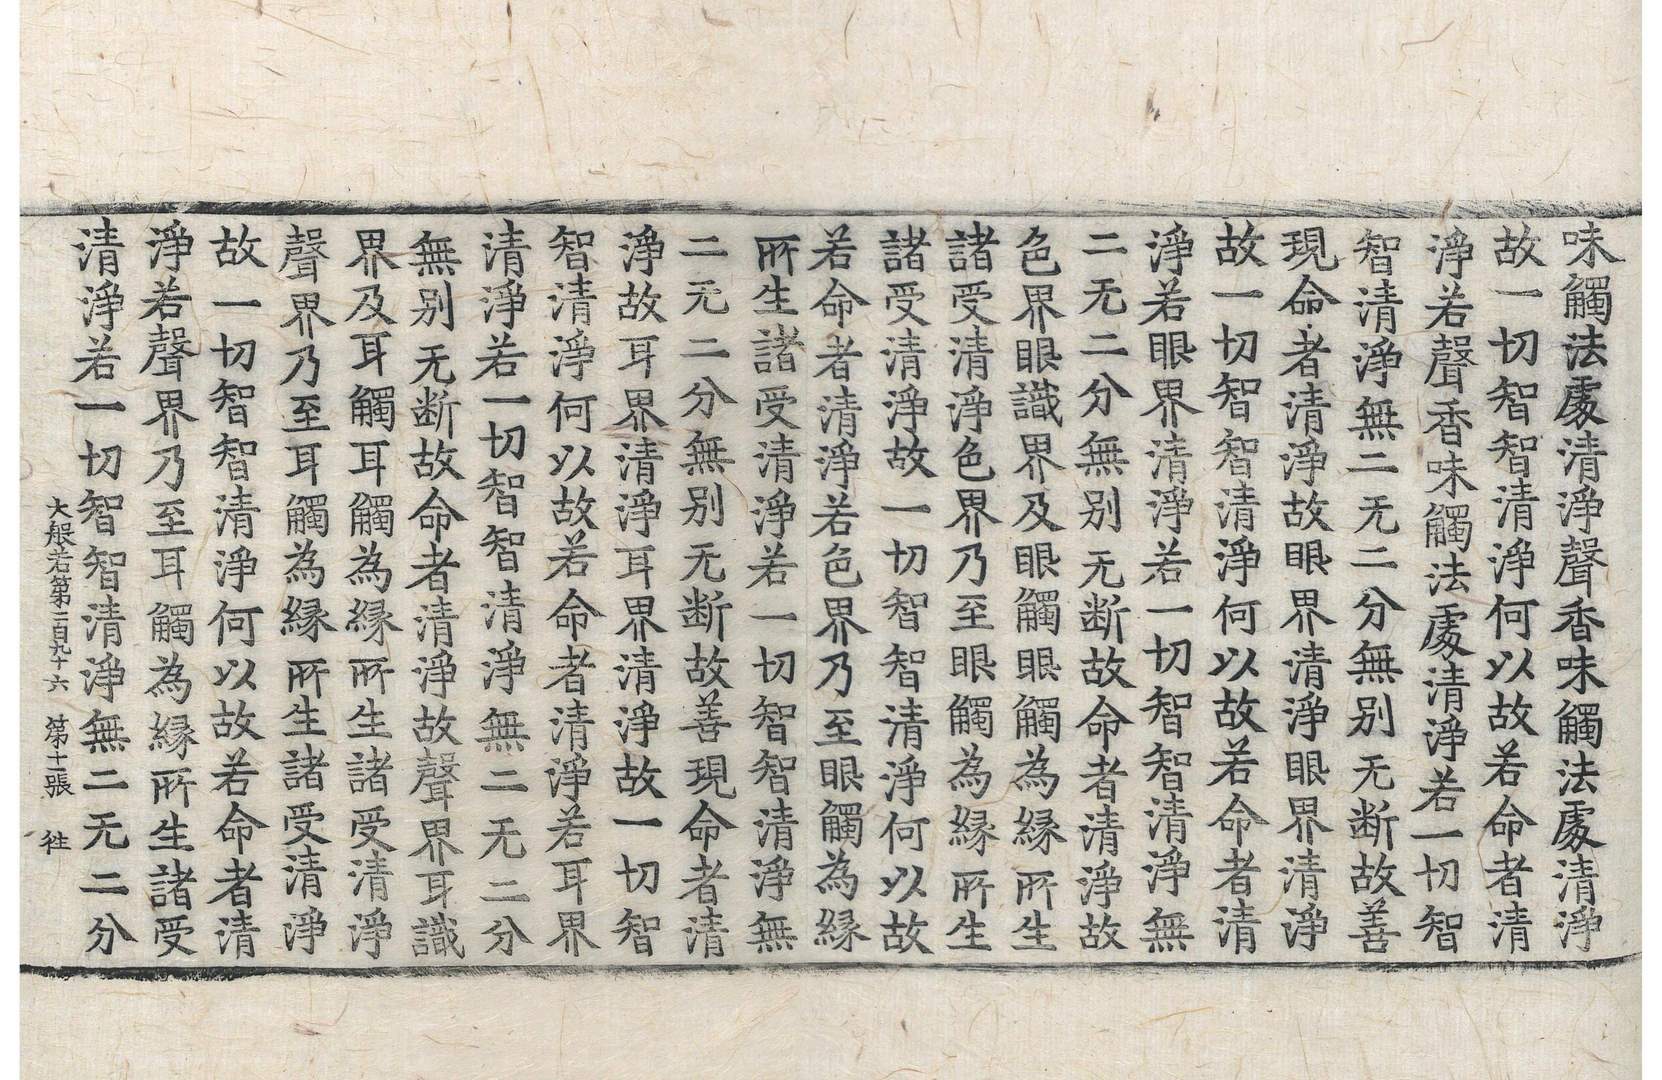 味觸法處清淨聲香味觸法處清淨
故一切智智清淨何以故若命者清
淨若聲香味觸法處清淨若一切智
智清淨無二无二分無別无断故善
現命者清淨故眼界清淨眼界清淨
故一切智智清淨何以故若命者清
淨若眼界清淨若一切智智清淨無
二无二分無別无断故命者清淨故
色界眼識界及眼觸眼觸為縁所生
諸受清淨色界乃至眼觸為縁所生
諸受清淨故一切智智清淨何以故
若命者清淨若色界乃至眼觸為縁
所生諸受清淨若一切智智清淨無
二无二分無別无断故善現命者清
淨故耳界清淨耳界清淨故一切智
智清淨何以故若命者清淨若耳界
清淨若一切智智清淨無二无二分
無別无断故命者清淨故聲界耳識
界及耳觸耳觸為縁所生諸受清淨
聲界乃至耳觸為縁所生諸受清淨
故一切智智清淨何以故若命者清
淨若聲界乃至耳觸為縁所生諸受
清淨若一切智智清淨無二无二分
大般若第一百九十六 第十一張 往